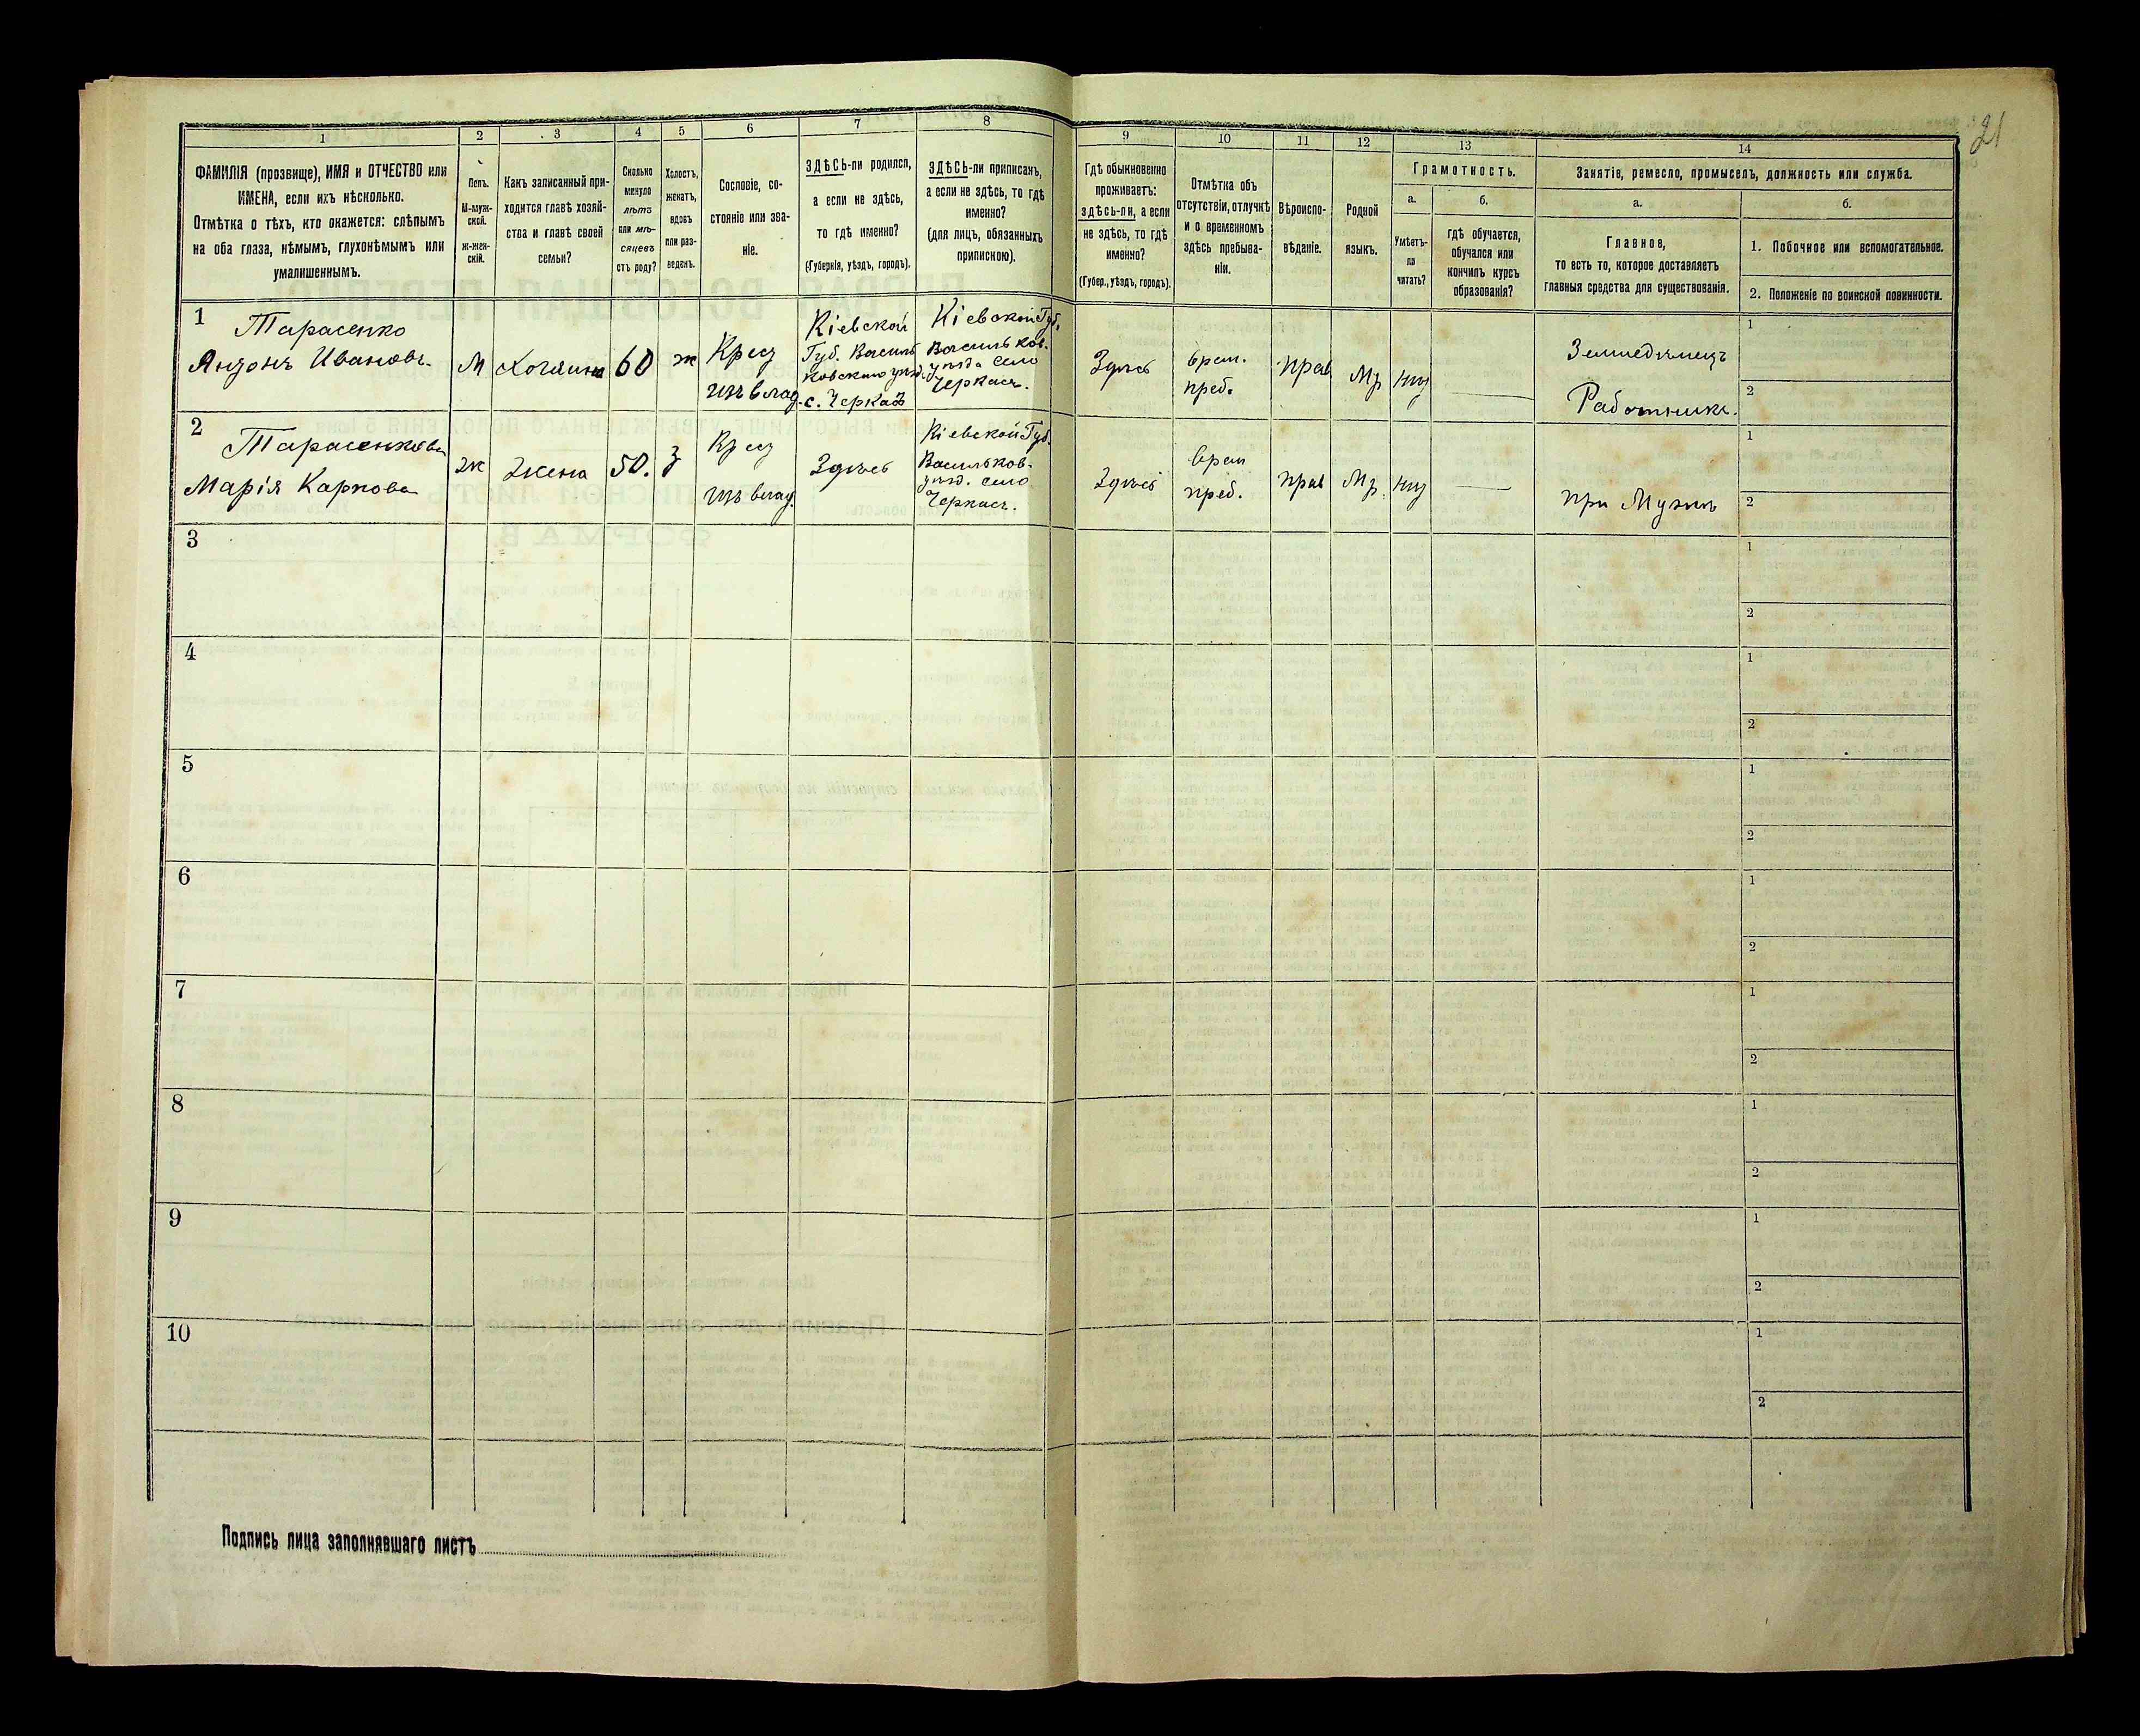 21
1
2
3
4
5
6
7
8
9
10
11
12
13
14
ФАМИЛІЯ (прозвище), ИМЯ и ОТЧЕСТВО или
ИМЕНА, если ихъ нѣсколько.
Отмѣтка о тѣхъ, кто окажется: слѣпымъ
на оба глаза, нѣмымъ, глухонѣмымъ или
умалишеннымъ.
Полъ.
М-муж-
ской.
ж-жен-
скій.
Какъ записанный при-
ходится главѣ хозяй-
ства и главѣ своей
семьи?
Сколько
минуло
лѣтъ
или мѣ-
сяцевъ
отъ роду?
Холостъ,
женатъ,
вдовъ
или раз-
веденъ.
Сословіе, со-
стояніе или зва-
ніе.
ЗДѢСЬ-ли родился,
а если не здѣсь,
то гдѣ именно?
(Губернія, уѣздъ, городъ).
ЗДѢСЬ-ли приписанъ,
а если не здѣсь, то гдѣ
именно?
(для лицъ, обязанныхъ
припискою).
Гдѣ обыкновенно
проживаетъ:
здѣсь-ли, а если
не здѣсь, то гдѣ
именно?
(Губер., уѣздъ, городъ).
Отмѣтка объ
отсутствіи, отлучкѣ
и о временномъ
здѣсь пребыва-
ніи.
Вѣроиспо-
вѣданіе.
Родной
языкъ.
Грамотность.
а.
Умѣетъ-
ли
читать?
б.
гдѣ обучается,
обучался или
кончилъ курсъ
образованія?
Занятіе, ремесло, промыселъ, должность или служба.
а.
Главное,
то есть то, которое доставляетъ
главныя средства для существованія.
б.
1. Побочное или вспомогательное.
2. Положеніе по воинской повинности.
1
Тарасенко
Антонъ Ивановъ.
М
Хозяинъ
60
ж
Крест
изъ влад.
Кіевской
Губ. Василь
ковскаго уѣзд.
с. Черкасъ
Кіевской Губ.
Васильков.
уѣзда село
Черкасъ.
Здѣсь
врем.
преб.
прав
Мр
нѣт
Земледѣлецъ
Работникъ.
1
2
2
Тарасенкова
Марія Карпова
ж
жена
50.
з
Крест
изъ влад.
Здѣсь
Кіевской Губ.
Васильков.
уѣзд. село
Черкасъ.
Здѣсь
врем
преб.
прав
Мр.
нѣт
при Мужѣ
1
2
3
1
2
4
1
2
5
1
2
6
1
2
7
1
2
8
1
2
9
1
2
10
1
2
Подпись лица заполнявшаго листъ